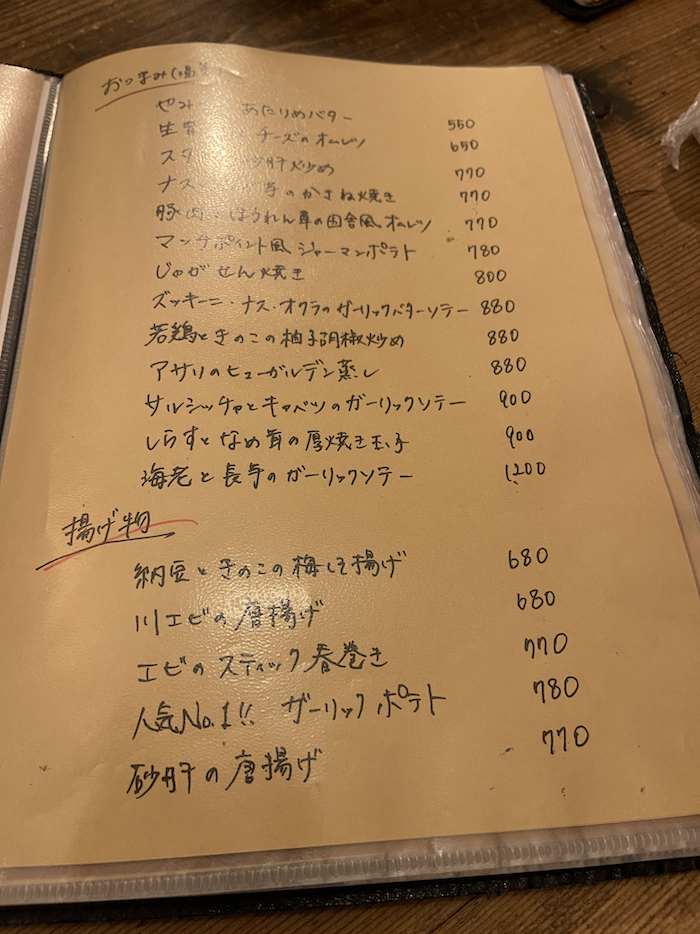 おつまみ(温
やみ あたりめバター 550
生 チーズのオムレツ 650
スタ 砂肝炒め 770
ナス のかさね焼き 770
豚肉 ほうれん草の田舎風オムレツ 770
マンチポイント風 ジャーマンポテト 780
じゃがせん焼き 800
ズッキーニ・ナス・オクラのガーリックバターソテー 880
若鶏ときのこの柚子胡椒炒め 880
アサリのヒューガルデン蒸し 880
サルシッチャとキャベツのガーリックソテー 900
しらすとなめ茸の厚焼き玉子 900
海老と長芋のガーリックソテー 1200
揚げ物
納豆ときのこの梅しそ揚げ 680
川エビの唐揚げ 680
エビのスティック春巻き 770
人気No.1!! ガーリックポテト 780
砂肝の唐揚げ 770